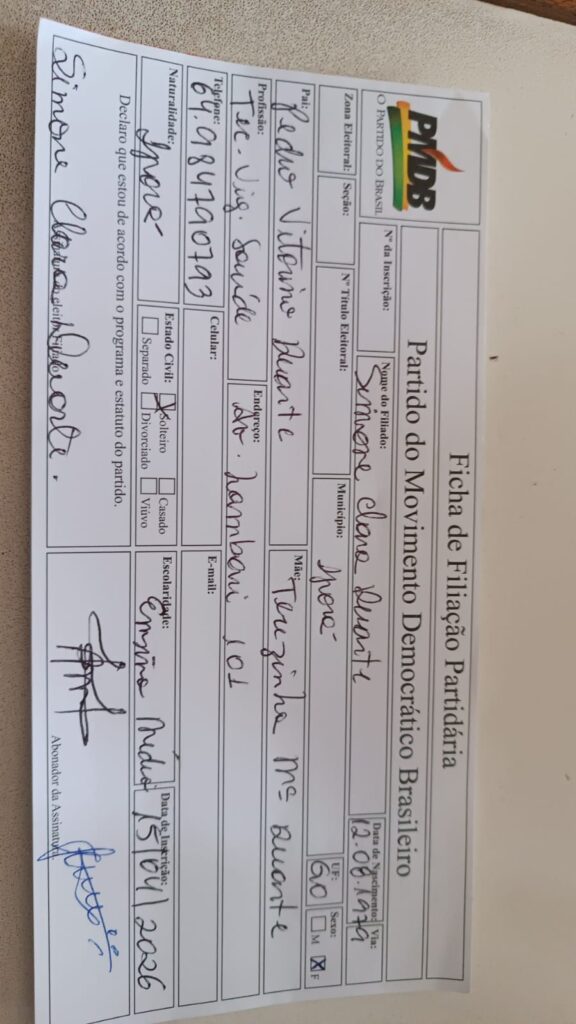 Ficha de Filiação Partidária
Partido do Movimento Democrático Brasileiro
PMDB
O PARTIDO DO BRASIL
Nº da Inscrição:
Nome do Filiado: Simone Clara Duarte
Data de Nascimento: 12.08.1979
Via:
Zona Eleitoral:
Seção:
Nº Título Eleitoral:
Município: Iporá
UF: GO
Sexo: M X F
Pai: Pedro Vitorino Duarte
Mãe: Terezinha Mª Duarte
Profissão: Tec. Vig. Saúde
Endereço: Av. Lambari 101
Telefone: 64.984790793
Celular:
E-mail:
Naturalidade: Iporá
Estado Civil: X Solteiro Casado
Separado Divorciado Viúvo
Escolaridade: Ensino Médio
Data de Inscrição: 15/04/2026
Declaro que estou de acordo com o programa e estatuto do partido.
Simone Clara Duarte.
Abonador da Assinatura